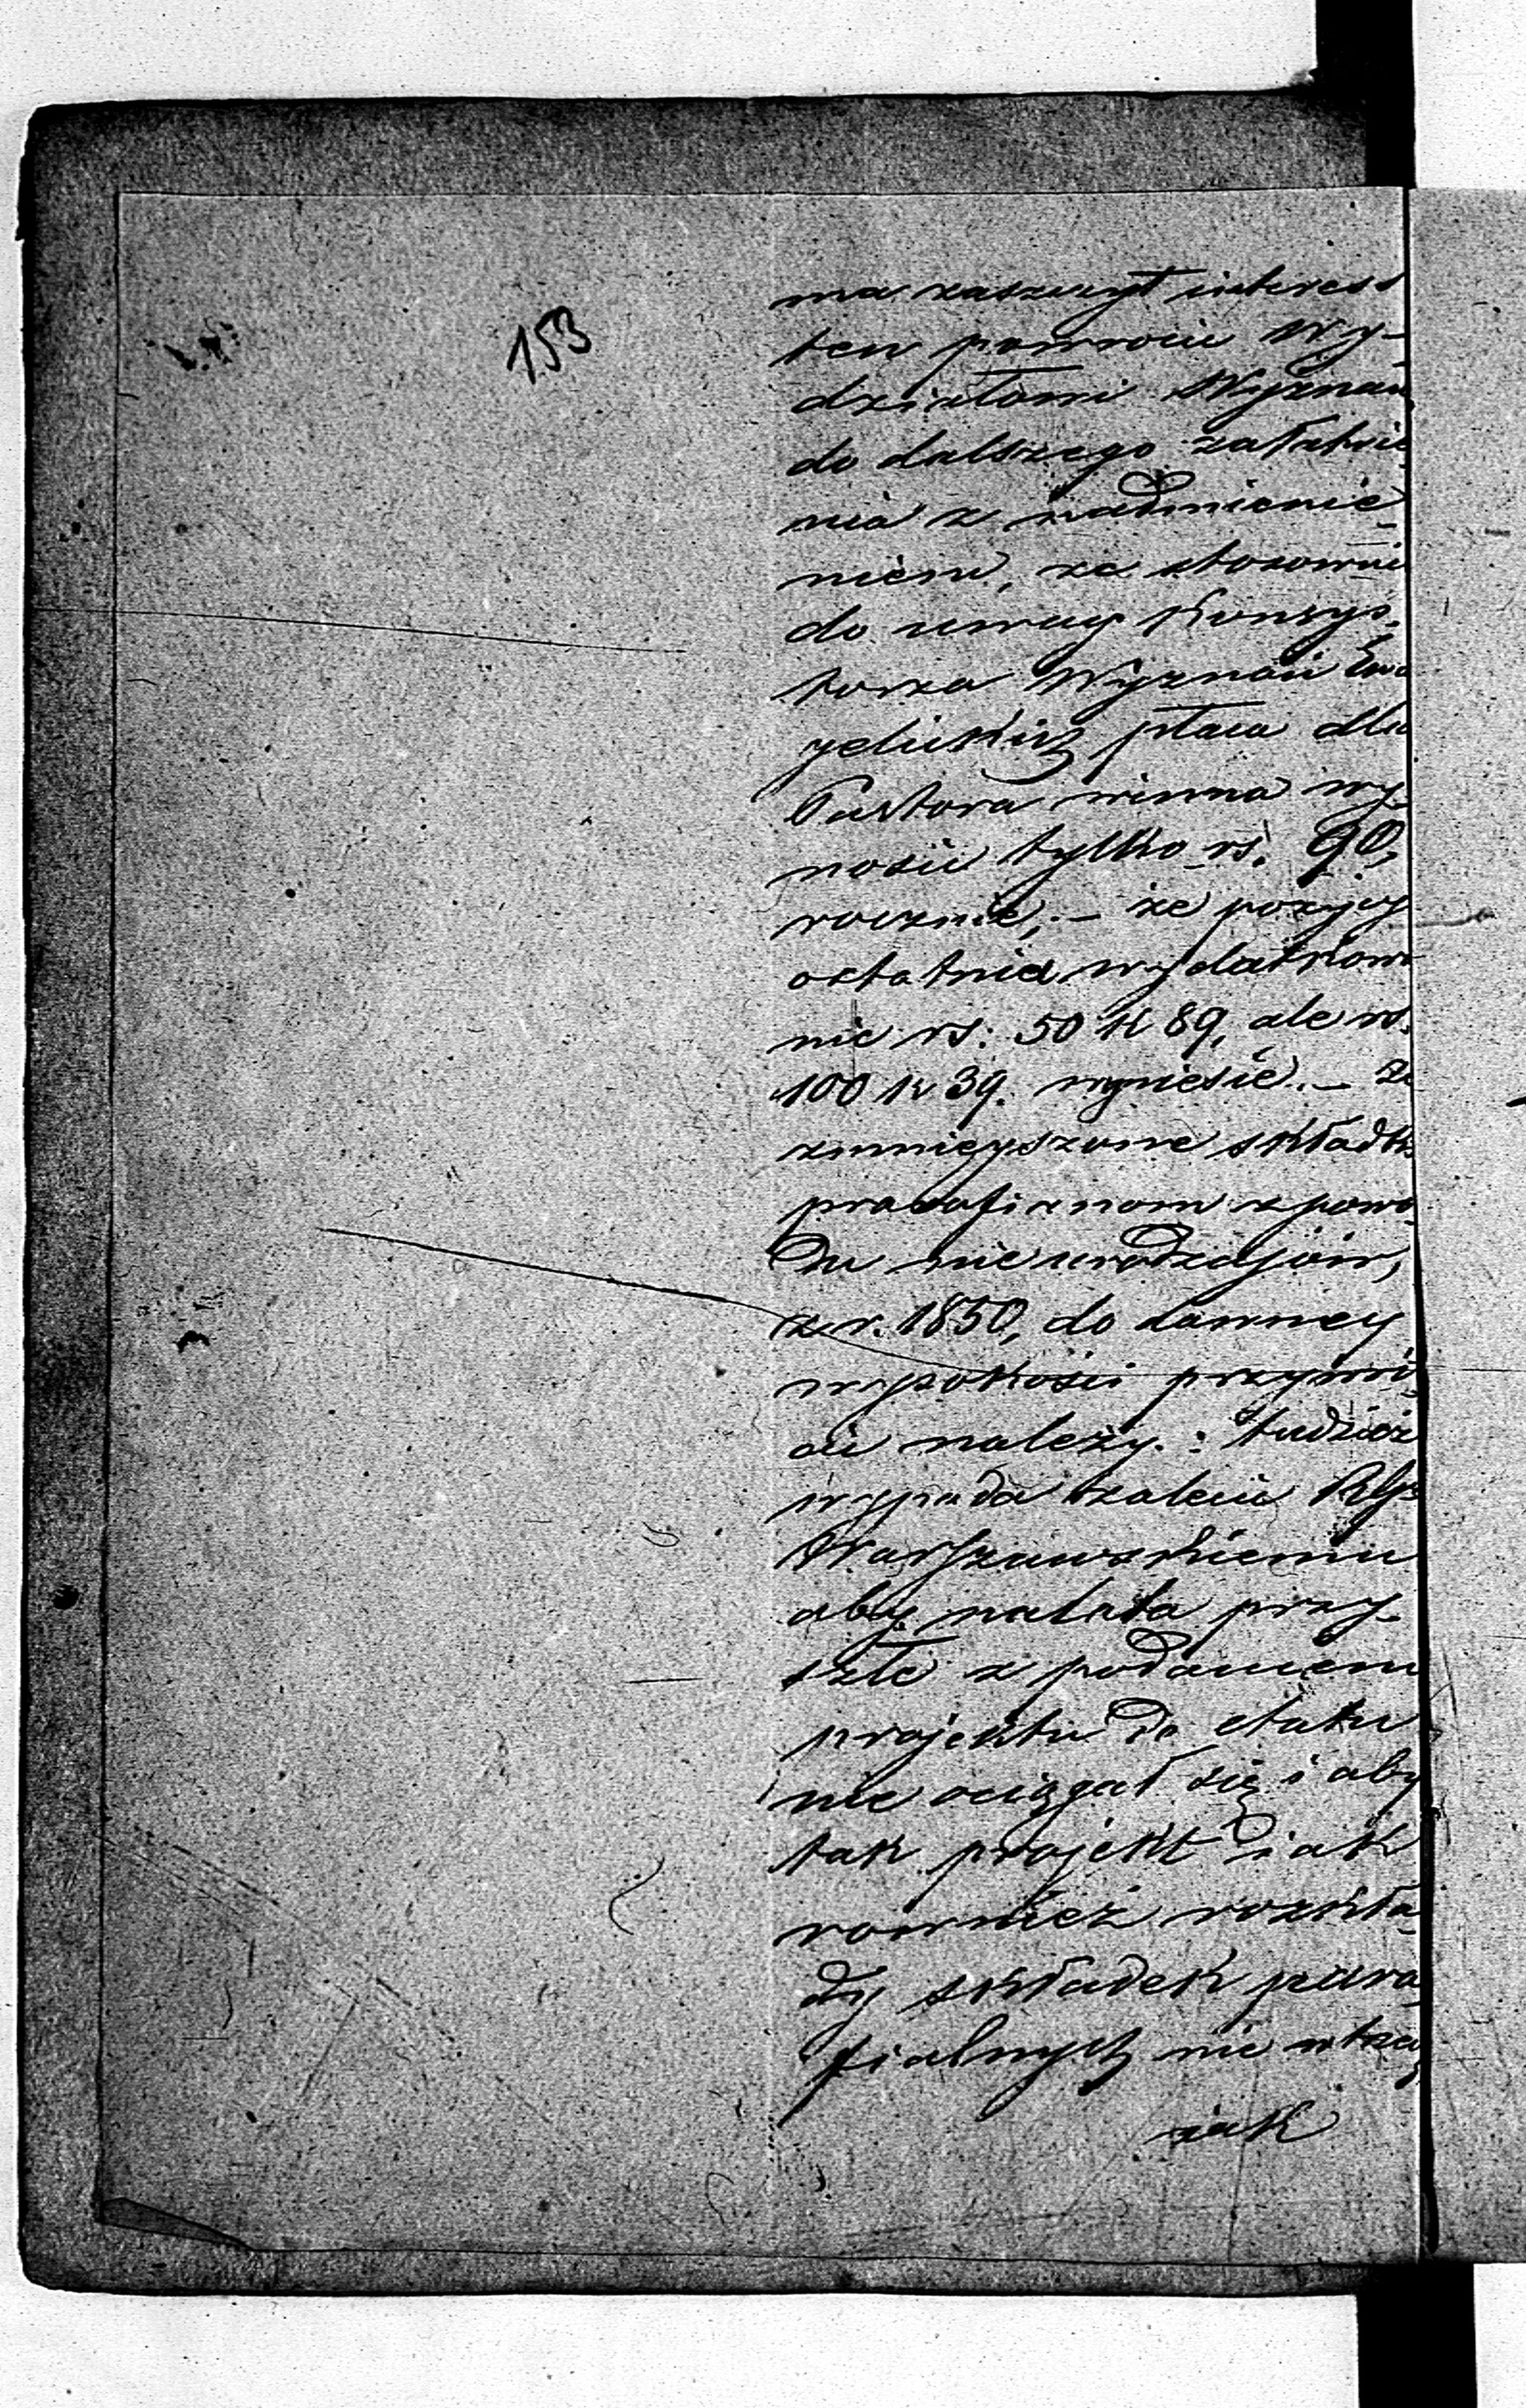 153
ma zaszczyt interess
ten powrocić Wy-
działowi Wyznań
do dalszego załatwie
nia z nadmienie
niem, że stosownie
do uwagi Konsys-
torza Wyznań Ewa
gelickich płaca dla
Pastora winna wy-
nosić tylko rs. 90,
rocznie, – że pozycyę
ostatnia wydatkow
nie rs: 50 k 89, ale rs.
100 k 39. wyniesie. – Że
zmnieyszone składki
parafianom z powo
du nieurodzajów,
z r. 1850, do dawney
wysokości przywró
cić należy. : tudzież
wypada zalecić RGu
Warszawskiemu
aby na lata przy-
szłe z podaniem
projektu do etatu
nie ociągał się i aby
tak projekt iak
również rozkła-
dy składek para
fialnych nie
iak